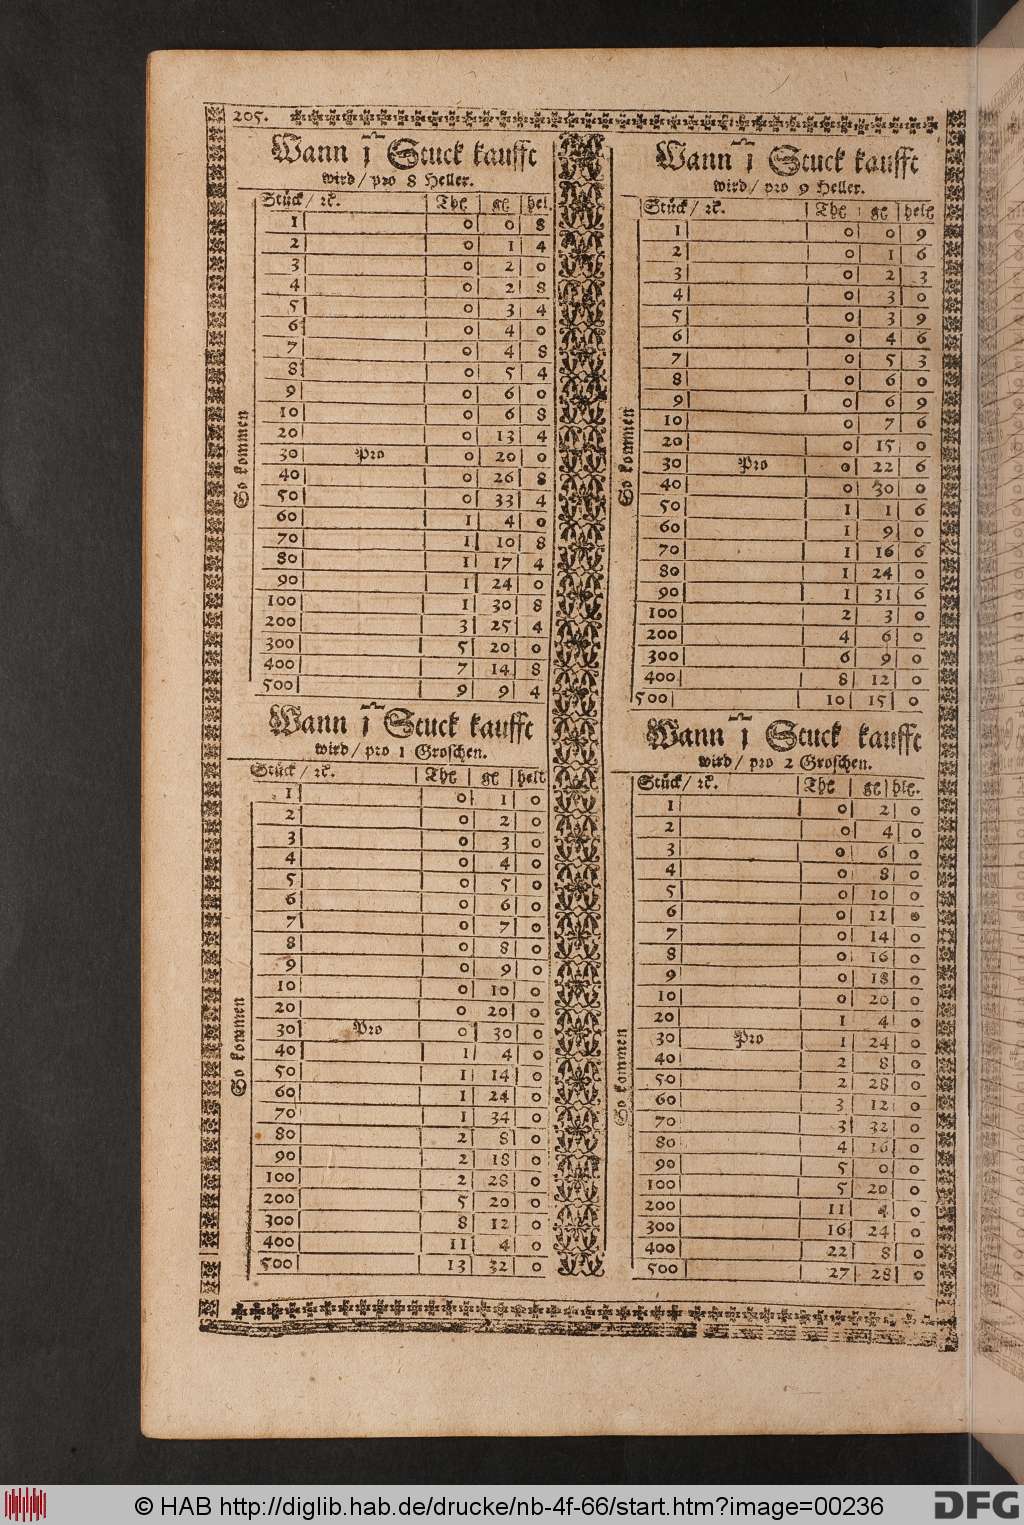 205.
Wann j Stuck kaufft
wird / pro 8 Heller.
Stück / ꝛc. Thl gl hel.
So kommen
1 0 0 8
2 0 1 4
3 0 2 0
4 0 2 8
5 0 3 4
6 0 4 0
7 0 4 8
8 0 5 4
9 0 6 0
10 0 6 8
20 0 13 4
30 Pro 0 20 0
40 0 26 8
50 0 33 4
60 1 4 0
70 1 10 8
80 1 17 4
90 1 24 0
100 1 30 8
200 3 25 4
300 5 20 0
400 7 14 8
500 9 9 4
Wann j Stuck kaufft
wird / pro 1 Groschen.
Stück / ꝛc. Thl gl helt
So kommen
1 0 1 0
2 0 2 0
3 0 3 0
4 0 4 0
5 0 5 0
6 0 6 0
7 0 7 0
8 0 8 0
9 0 9 0
10 0 10 0
20 0 20 0
30 Pro 0 30 0
40 1 4 0
50 1 14 0
60 1 24 0
70 1 34 0
80 2 8 0
90 2 18 0
100 2 28 0
200 5 20 0
300 8 12 0
400 11 4 0
500 13 32 0
Wann j Stuck kaufft
wird / pro 9 Heller.
Stück / ꝛc. Thl gl hell
So kommen
1 0 0 9
2 0 1 6
3 0 2 3
4 0 3 0
5 0 3 9
6 0 4 6
7 0 5 3
8 0 6 0
9 0 6 9
10 0 7 6
20 0 15 0
30 Pro 0 22 6
40 0 30 0
50 1 1 6
60 1 9 0
70 1 16 6
80 1 24 0
90 1 31 6
100 2 3 0
200 4 6 0
300 6 9 0
400 8 12 0
500 10 15 0
Wann j Stuck kaufft
wird / pro 2 Groschen.
Stück / ꝛc. Thl gl hle.
So kommen
1 0 2 0
2 0 4 0
3 0 6 0
4 0 8 0
5 0 10 0
6 0 12 0
7 0 14 0
8 0 16 0
9 0 18 0
10 0 20 0
20 1 4 0
30 Pro 1 24 0
40 2 8 0
50 2 28 0
60 3 12 0
70 3 32 0
80 4 16 0
90 5 0 0
100 5 20 0
200 11 4 0
300 16 24 0
400 22 8 0
500 27 28 0
© HAB http://diglib.hab.de/drucke/nb-4f-66/start.htm?image=00236
DFG